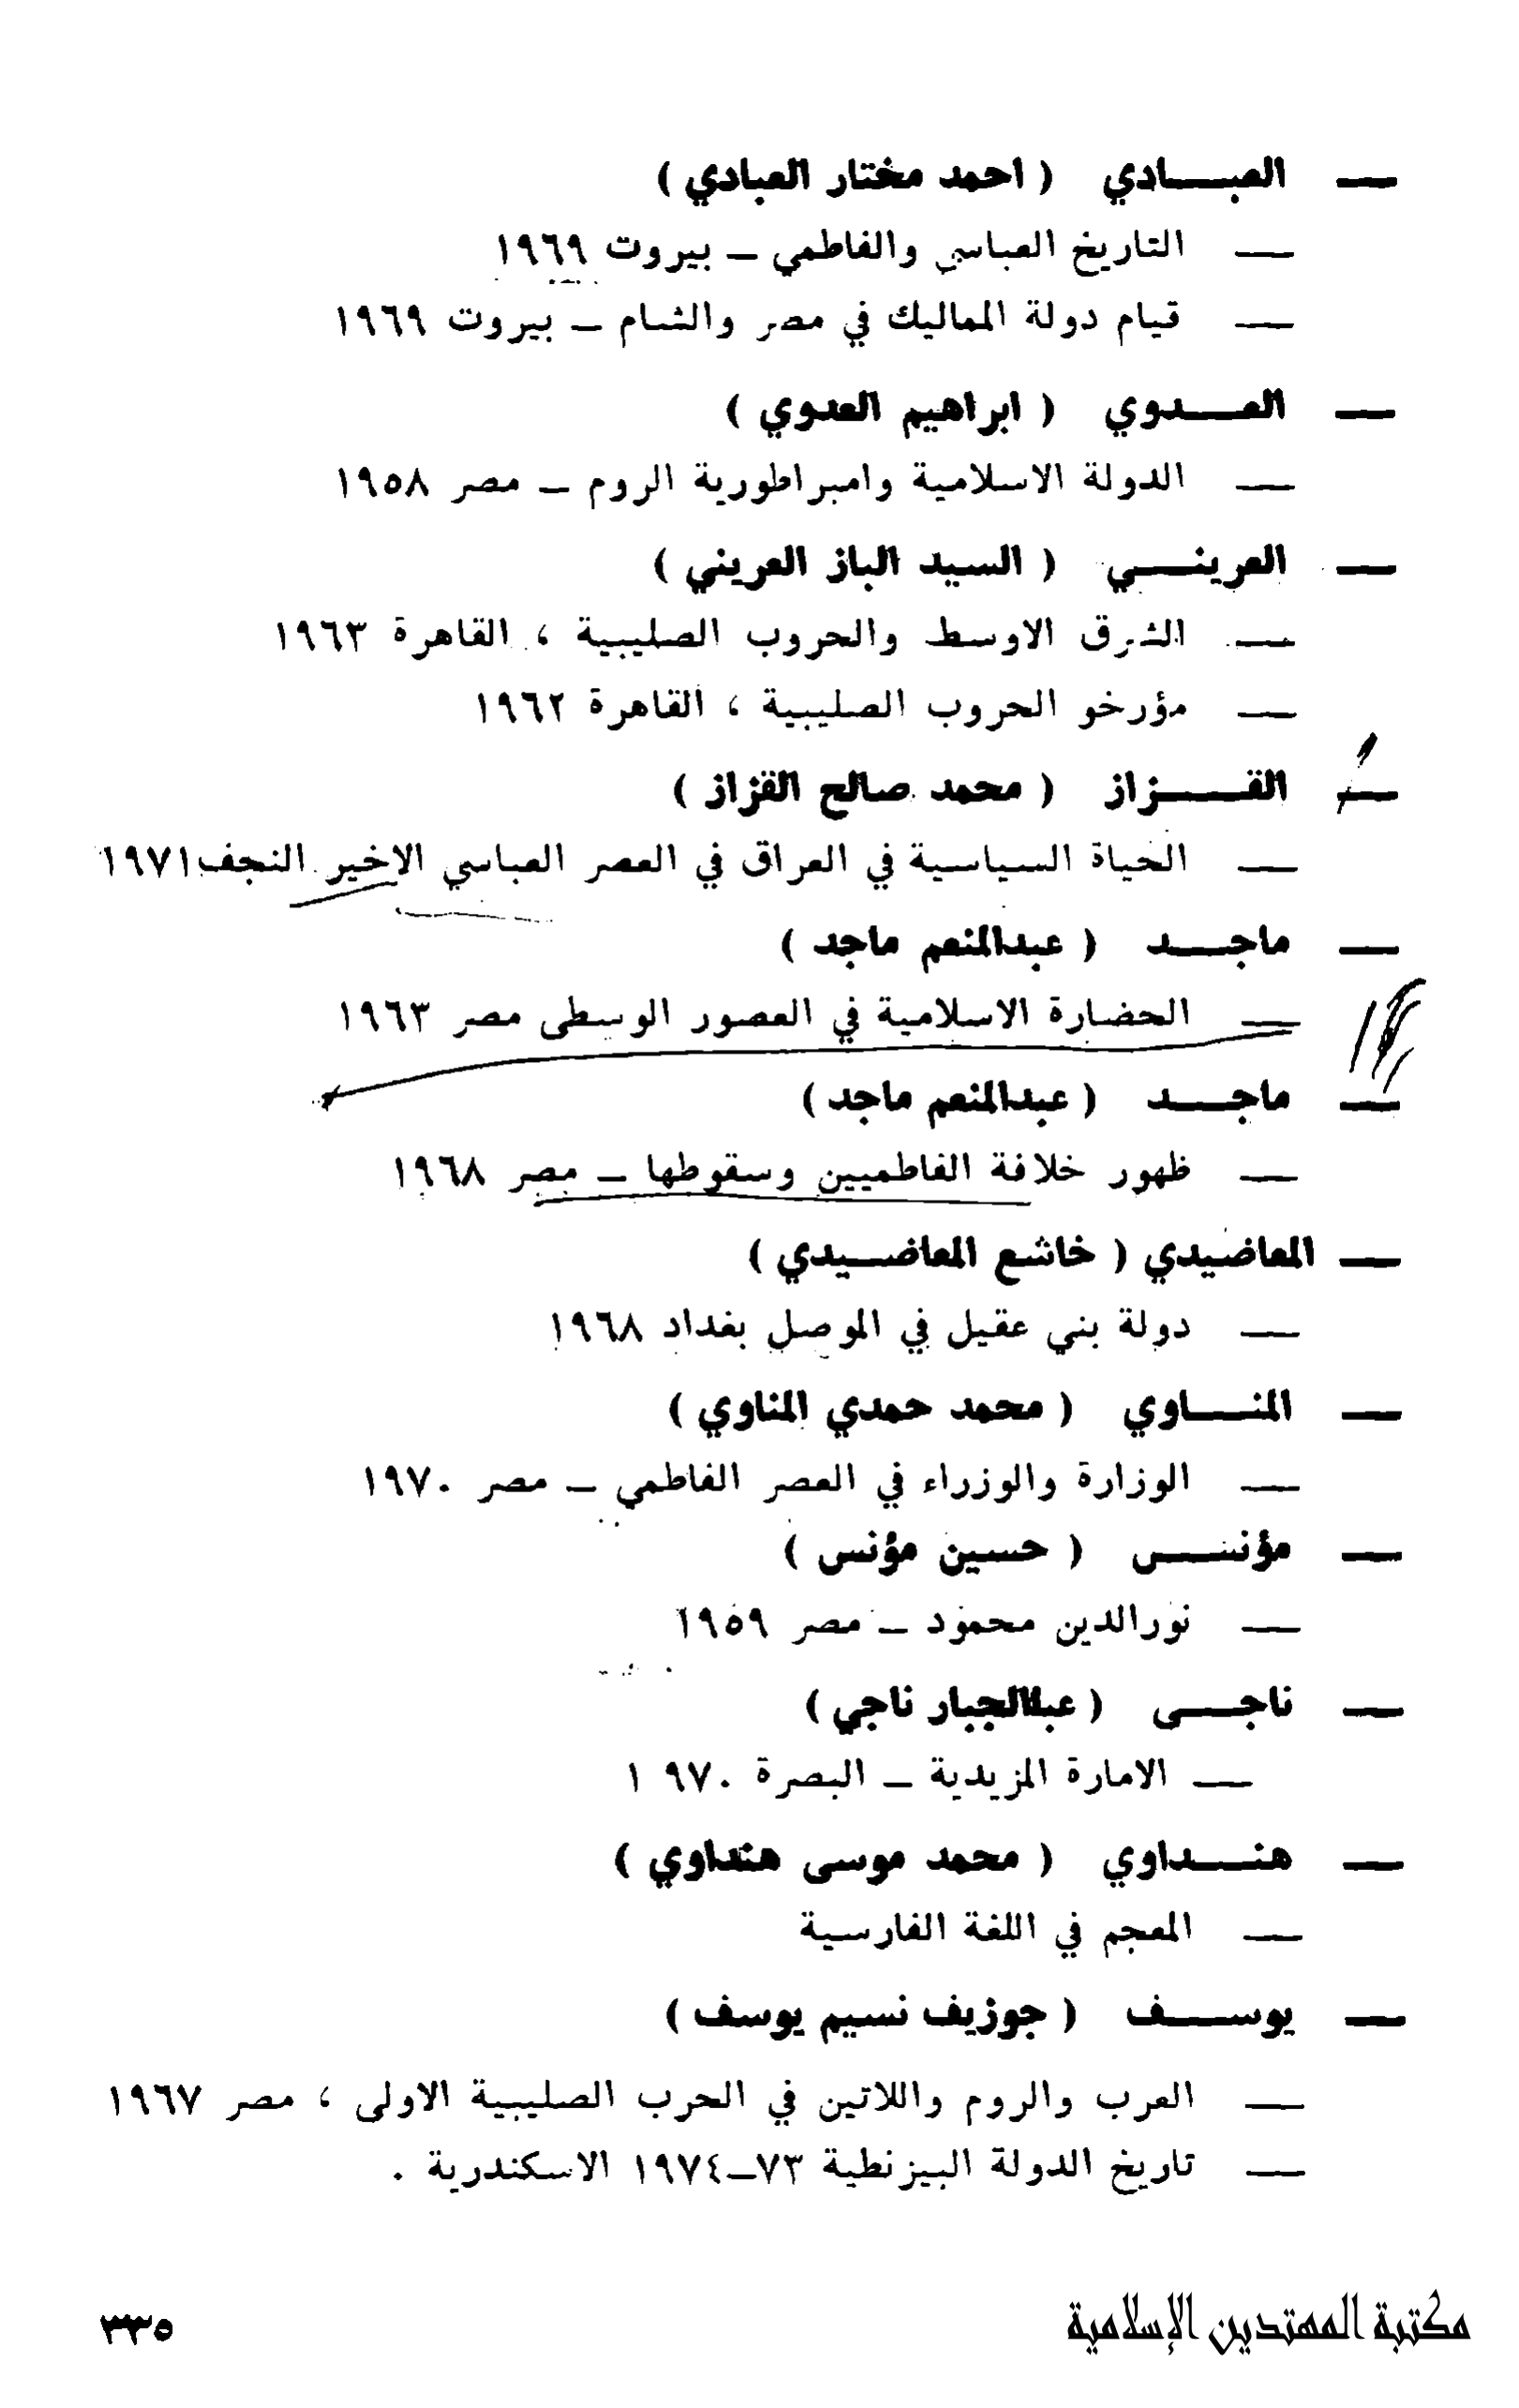 — العبادي ( احمد مختار العبادي )
— التاريخ العباسي والفاطمي — بيروت ١٩٦٩
— قيام دولة المماليك في مصر والشام — بيروت ١٩٦٩
— العدوي ( ابراهيم العدوي )
— الدولة الاسلامية وامبراطورية الروم — مصر ١٩٥٨
— العريني ( السيد الباز العريني )
— الشرق الاوسط والحروب الصليبية ، القاهرة ١٩٦٣
— مؤرخو الحروب الصليبية ، القاهرة ١٩٦٢
— القزاز ( محمد صالح القزاز )
— الحياة السياسية في العراق في العصر العباسي الاخير النجف ١٩٧١
— ماجد ( عبدالمنعم ماجد )
— الحضارة الاسلامية في العصور الوسطى مصر ١٩٦٣
— ماجد ( عبدالمنعم ماجد )
— ظهور خلافة الفاطميين وسقوطها — مصر ١٩٦٨
— المعاضيدي ( خاشع المعاضيدي )
— دولة بني عقيل في الموصل بغداد ١٩٦٨
— المناوي ( محمد حمدي المناوي )
— الوزارة والوزراء في العصر الفاطمي — مصر ١٩٧٠
— مؤنس ( حسين مؤنس )
— نورالدين محمود — مصر ١٩٥٩
— ناجى ( عبدالجبار ناجي )
— الامارة المزيدية — البصرة ١٩٧٠
— هنداوي ( محمد موسى هنداوي )
— المعجم في اللغة الفارسية
— يوسف ( جوزيف نسيم يوسف )
— العرب والروم واللاتين في الحرب الصليبية الاولى ، مصر ١٩٦٧
— تاريخ الدولة البيزنطية ٧٣—١٩٧٤ الاسكندرية .
مكتبة المهتدين الإسلامية
٣٣٥